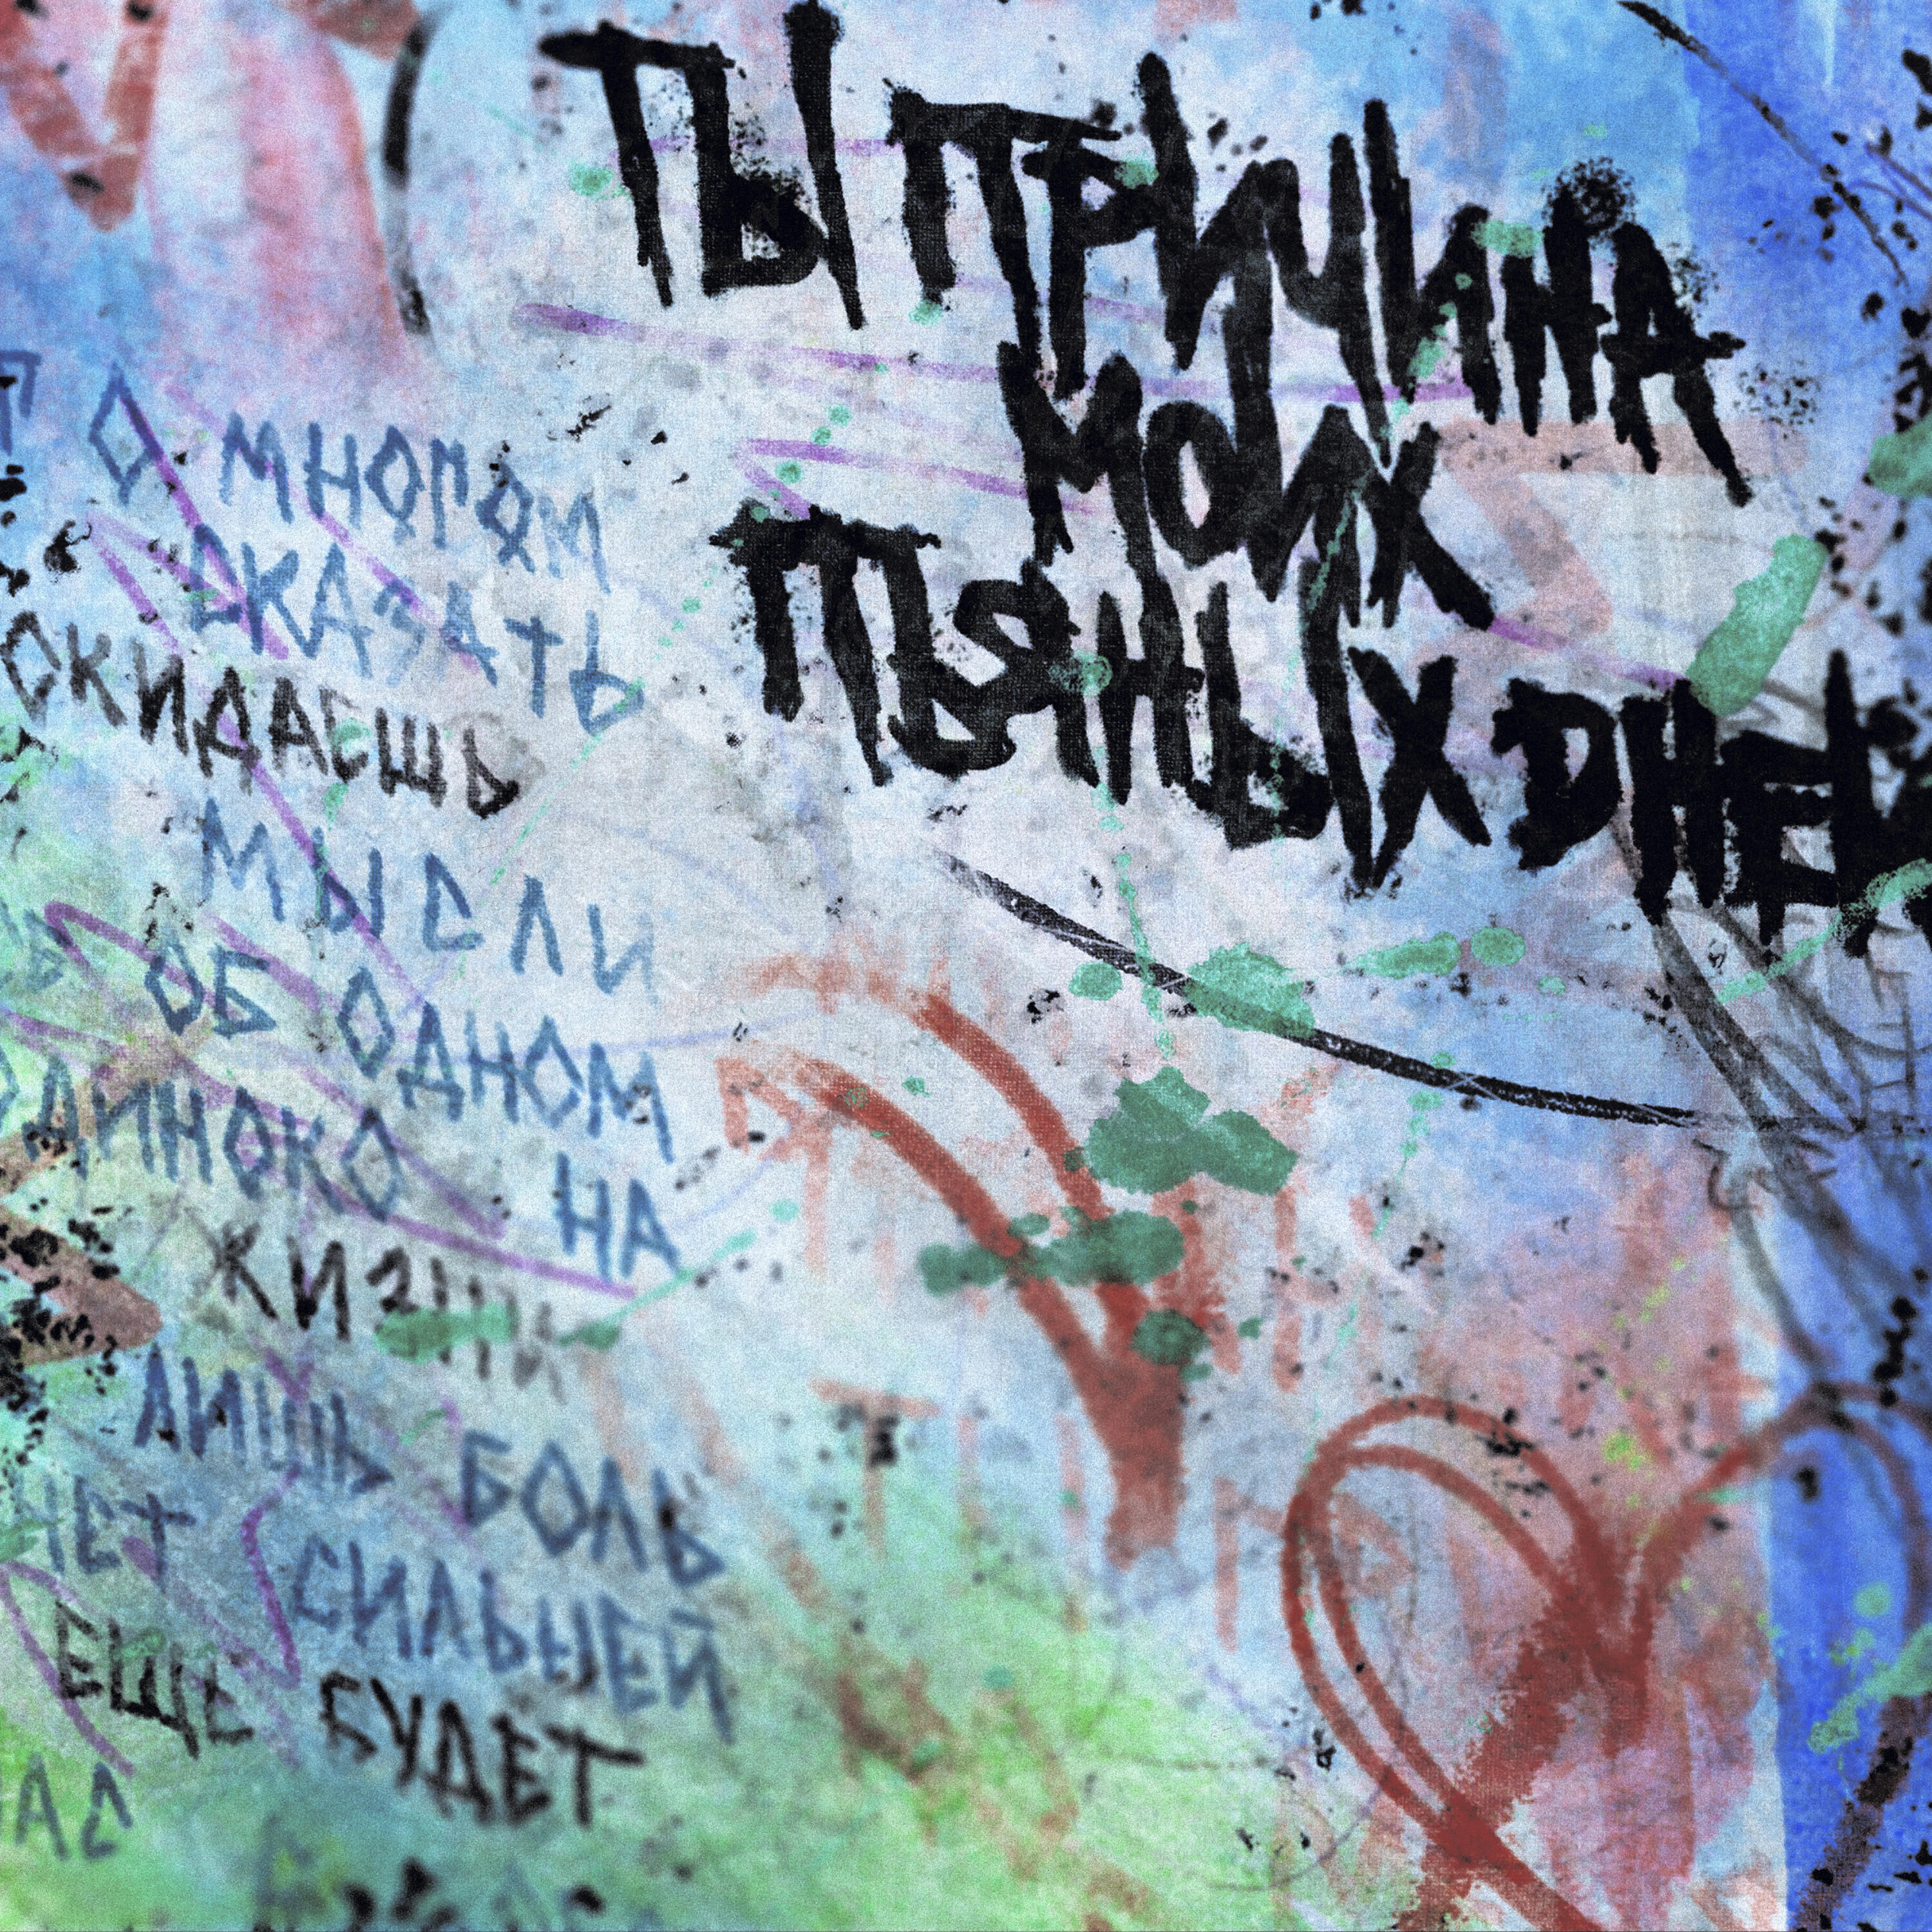 ТЫ ПРИЧИНА
МОИХ
ПЬЯНЫХ ДНЕЙ
О МНОГОМ
СКАЗАТЬ
СКИДАЕШЬ
МЫСЛИ
ОБ ОДНОМ
ОДИНОКО НА
ЖИЗНИ
ЛИШЬ БОЛЬ
НЕТ СИЛЬНЕЙ
ЕЩЕ БУДЕТ